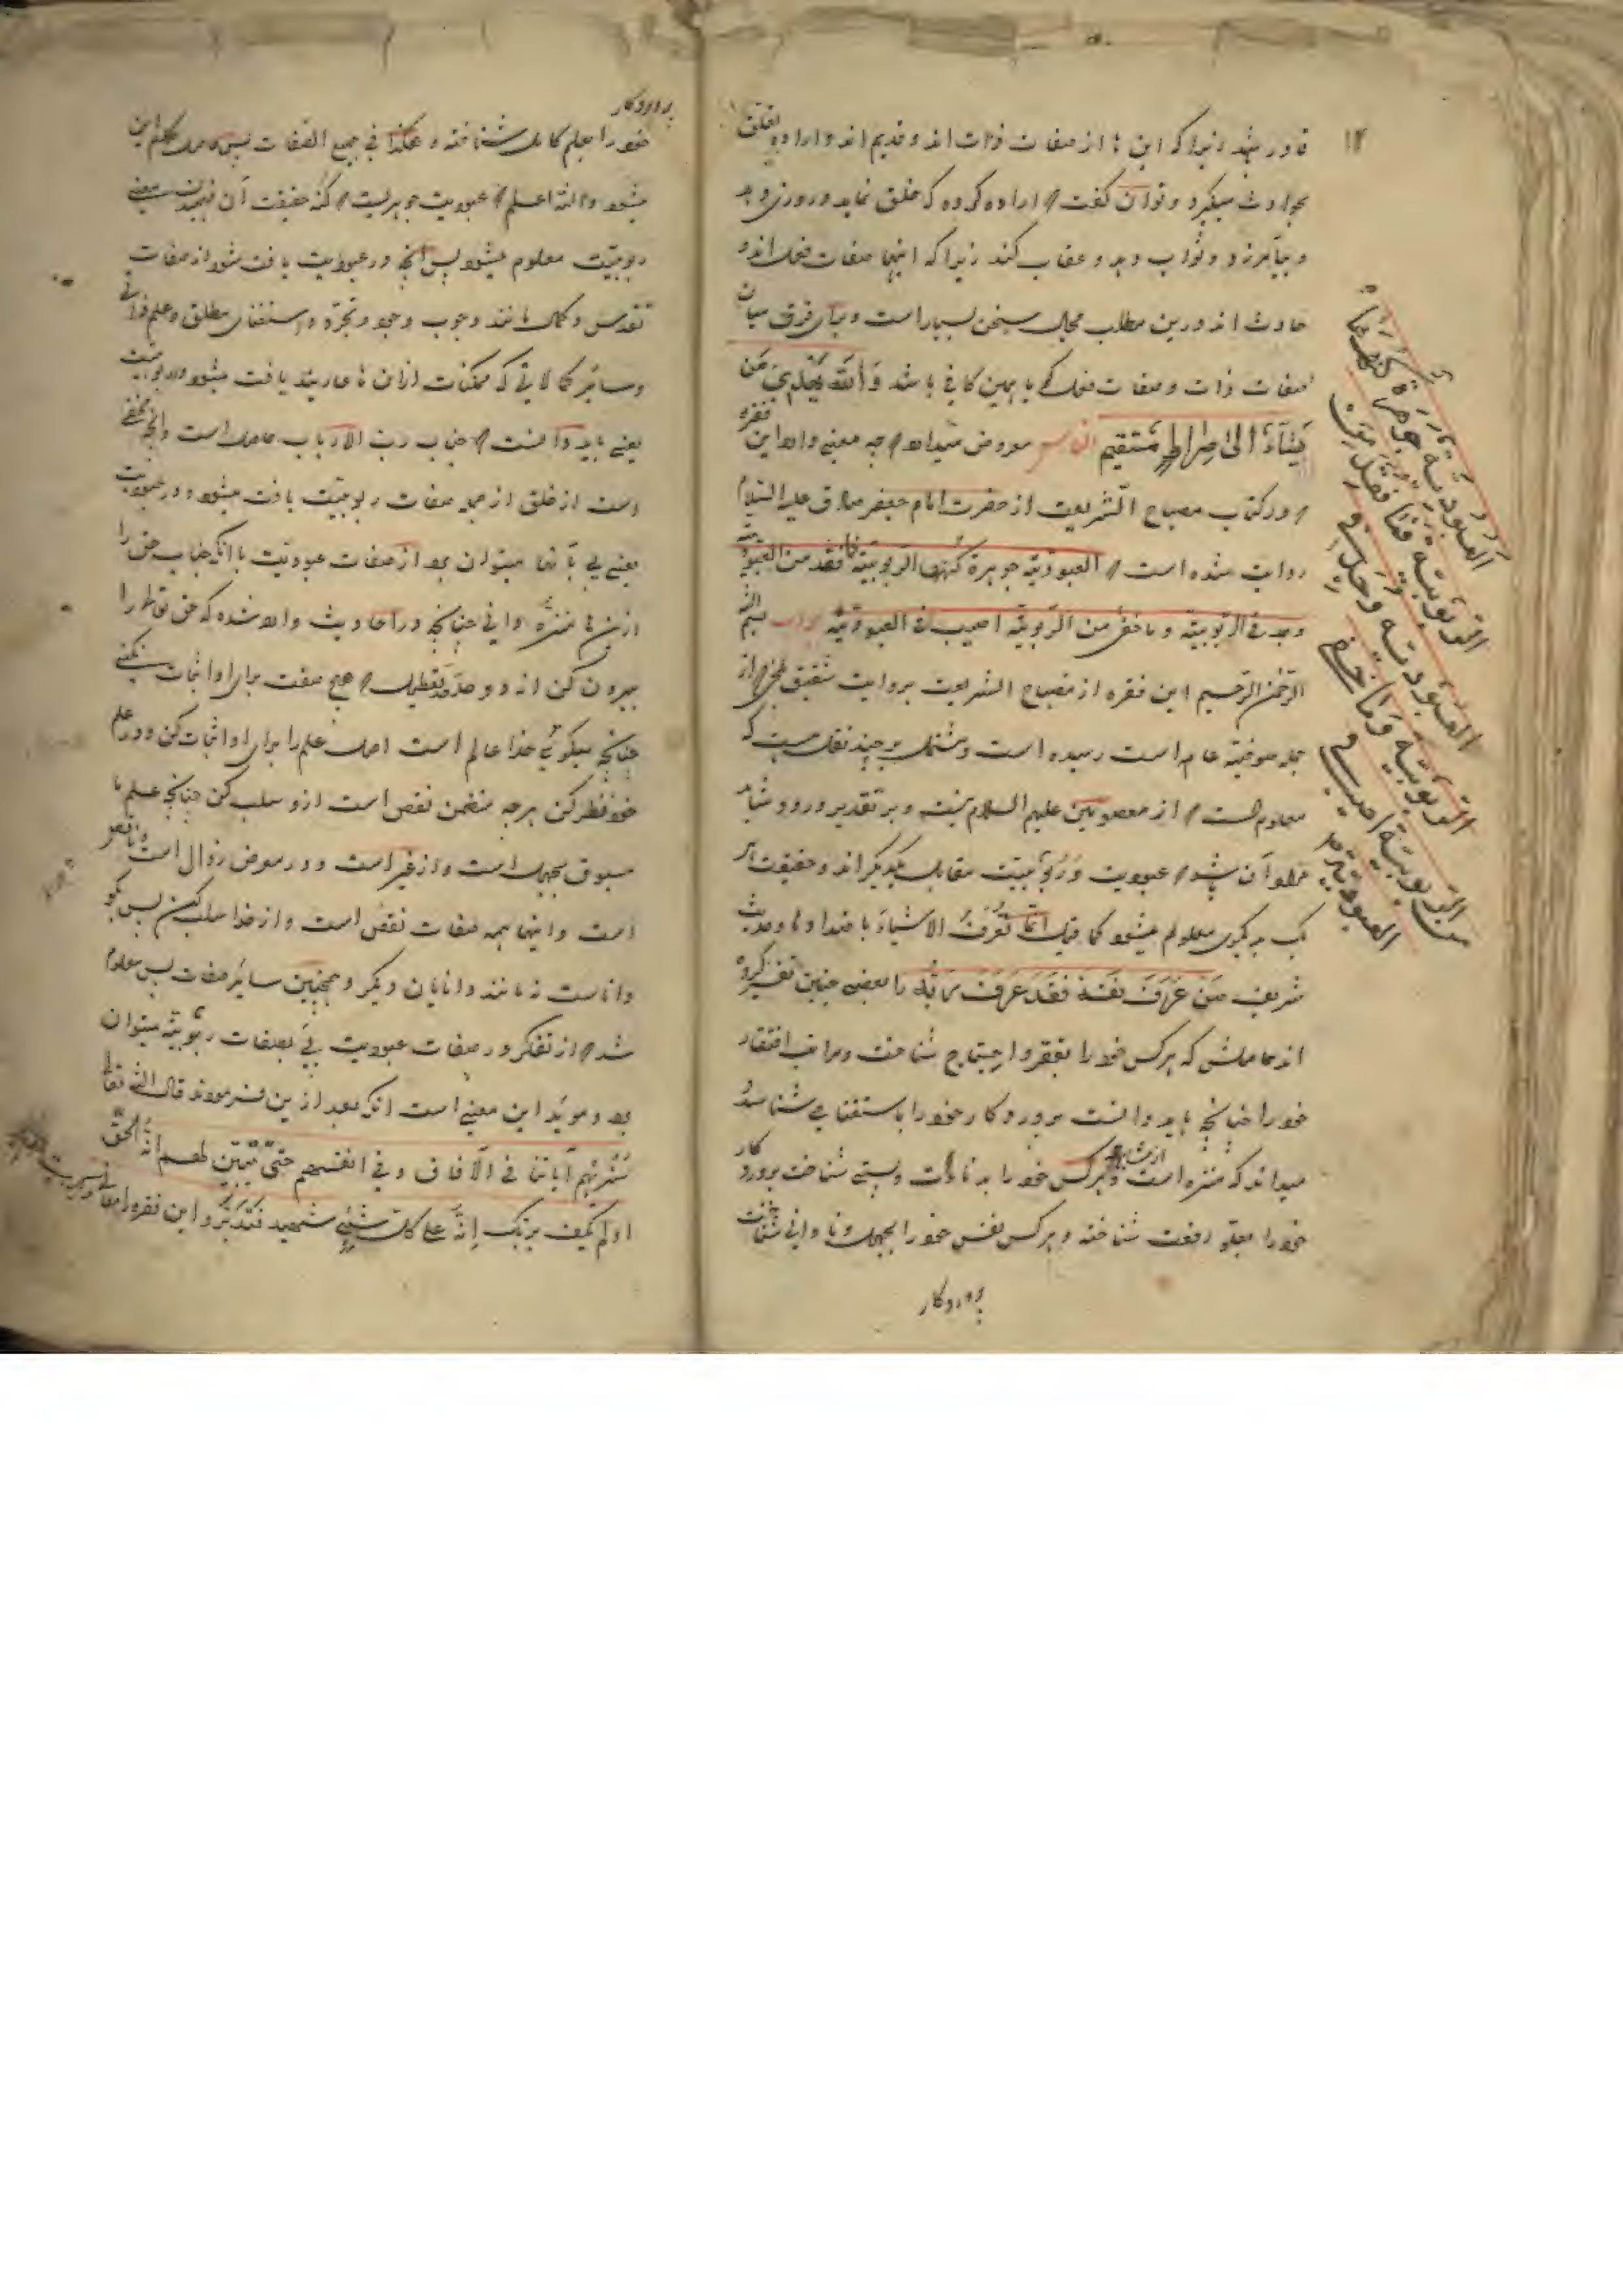 ۱۲
قادر نباشد زیرا که این ها از صفات ذات اند و قدیم اند و اراده بخلق
حوادث میگیرد و توان گفت که اراده کرده که خلق نماید و روزی دهد
و بیامرزد و ثواب دهد و عقاب کند زیرا که اینها صفات فعل اند و
حادث اند و درین مطلب مجال سخن بسیار است و برای فرق میان
صفات ذات و صفات فعل که با همین کافی باشد وَاللّٰه یَهْدِی مَن
یَشَآءُ اِلیٰ صِراطٍ مُسْتَقِیم معروض میدارد که چه معنی دارد این فقره
که در کتاب مصباح الشریعت از حضرت امام جعفر صادق علیه السلام
روایت شده است که العبودیّة جوهرة کنهها الربوبیّة فما فقد من العبودیّة
وجد فی الربوبیّة و ما خفی من الربوبیّة اصیب فی العبودیّة جواب بسم اللّٰه
الرّحمٰن الرّحیم این فقره از مصباح الشریعت بروایت شقیق بلخی که از
جمله صوفیه عامه است رسیده است و مشتمل بر چند نقل هست که
معلوم است که از معصومین علیهم السلام نیست و بر تقدیر ورود شاید
مراد آن باشد که عبودیت و ربوبیّت مقابل یکدیگر اند و حقیقت هر
یک به دیگری معلوم میشود کما قیل انّما تُعْرَفُ الاشیاءُ باضدادها و حدیث
شریف مَنْ عَرَفَ نَفْسَهُ فَقَدْ عَرَفَ رَبَّهُ را بعضی چنین تفسیر کرده
اند حاصلش که هر کس خود را بفقر و احتیاج شناخت و مراتب افتقار
خود را چنانچه باید دانست پروردگار خود را باستغنا می شناسد و
میداند که منزه است از مشابهه و هر کس خود را به ذلت و پستی شناخت پروردگار
خود را بعلو رفعت شناخته و هر کس نفس خود را بجهل و نادانی شناخت
پروردگار
العبودیّة جوهرة کنهها
الربوبیّة فما فقد من
العبودیّة وجد فی
الربوبیّة وما خفی
من الربوبیّة اصیب فی
العبودیّة
پروردگار
خود را بعلم کامل شناخته و هکذا فی جمیع الصفات پس حاصل کلام این
میشود واللّٰه اعلم که عبودیت جوهریست که کنه حقیقت آن فهمیدنش بمعنی
ربوبیّت معلوم میشود پس آنچه در عبودیت یافت نشود از صفات
تقدس و کمال مانند وجوب وجود و تجرد و استغنای مطلق و علم ذاتی
و سایر کمالاتی که ممکنات ازان ها عاریند یافت میشود در ربوبیّت
یعنی باید دانست که جناب رب الارباب حاصل است و آنچه مخفی
است از خلق از جمله صفات ربوبیّت یافت میشود در عبودیت
یعنی پی بآنها میتوان برد از صفات عبودیّت با آنکه جناب حق را
ازین ها منزه دانی چنانچه در احادیث وارد شده که حق تعالی را
بیرون کن از دو حد تعطیل که هیچ صفت برای او اثبات نکنی
چنانچه میگوئی خدا عالم است اصل علم را برای او اثبات کن و در علم
خود نظر کن هر چه متضمن نقص است ازو سلب کن چنانچه علم ما
مسبوق بجهل است و از غیر است و در معرض زوال است و ناقص
است و اینها همه صفات نقص است و از خدا سلب کن پس بگو
داناست نه مانند دانایان دیگر و همچنین سایر صفات پس معلوم
شد که از تفکر در صفات عبودیت پی بصفات ربوبیّة میتوان
برد و موید این معنی است آنکه بعد ازین فرمودند قال اللّٰه تعالی
سَنُرِیهِم آیاتنا فی الآفاق و فی انفسهم حتّی یتبیّن لهم انّه الحقّ
اولم یکف بربّک اِنّه علی کلّ شیءٍ شهید